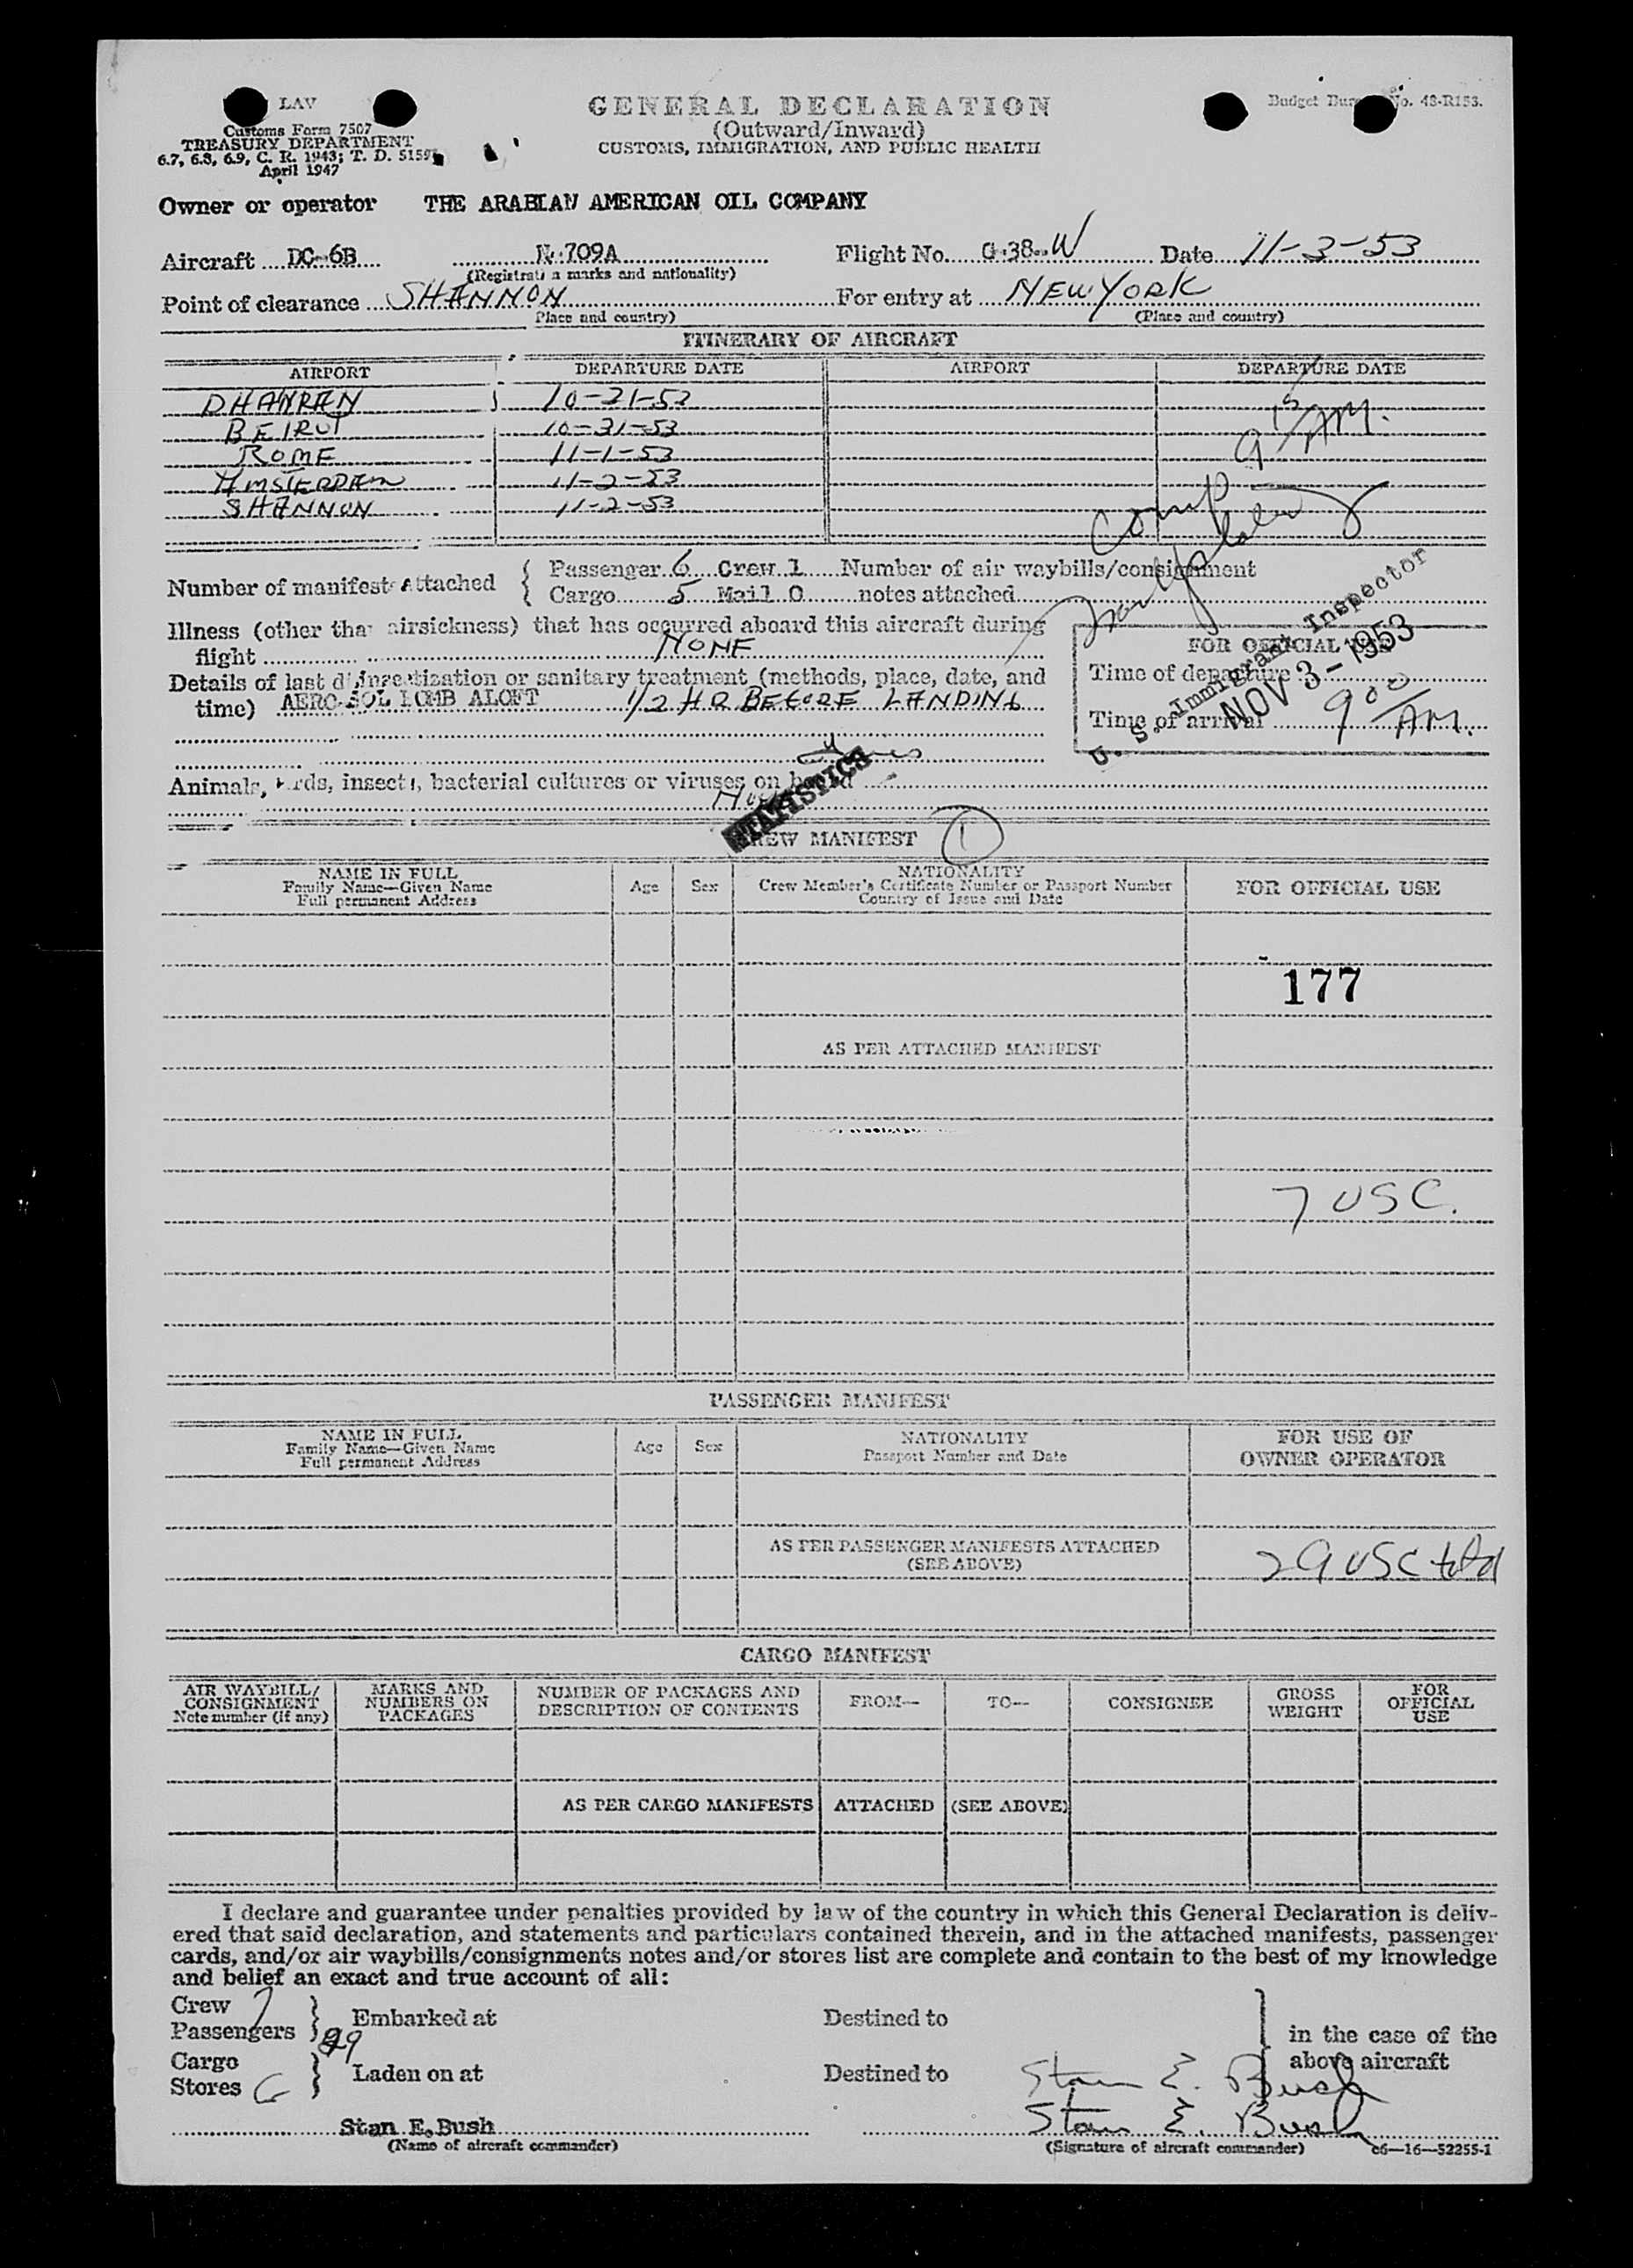 LAV
Customs Form 7507
TREASURY DEPARTMENT
6.7, 6.8, 6.9, C. R. 1943; T. D. 5159
April 1947
GENERAL DECLARATION
(Outward/Inward)
CUSTOMS, IMMIGRATION, AND PUBLIC HEALTH
Budget No. 43-R153.
Owner or operator THE ARABIAN AMERICAN OIL COMPANY
Aircraft DC-6B N-709A Flight No. G-38-W Date 11-3-53
(Registration marks and nationality)
Point of clearance SHANNON For entry at NEW YORK
Place and country) (Place and country)
ITINERARY OF AIRCRAFT
AIRPORT DEPARTURE DATE AIRPORT DEPARTURE DATE
DHAHRAN 10-31-53
BEIRUT 10-31-53
ROME 11-1-53
AMSTERDAM 11-2-53
SHANNON 11-2-53
9 15/AM.
Number of manifests Attached { Passenger 6 Crew 1 Number of air waybills/consignment
Cargo 5 Mail 0 notes attached
Illness (other than airsickness) that has occurred aboard this aircraft during
flight NONE
Details of last disinsectization or sanitary treatment (methods, place, date, and
time) AERO-SOL BOMB ALOFT 1/2 HR BEFORE LANDING
FOR OFFICIAL USE
Time of departure
Time of arrival 9 00/AM.
U. S. Immigrant Inspector
NOV 3 - 1953
Animals, birds, insects, bacterial cultures or viruses on board
STATISTICS
CREW MANIFEST 1
NAME IN FULL
Family Name—Given Name
Full permanent Address
Age Sex
NATIONALITY
Crew Member's Certificate Number or Passport Number
Country of Issue and Date
FOR OFFICIAL USE
177
AS PER ATTACHED MANIFEST
7 USC.
PASSENGER MANIFEST
NAME IN FULL
Family Name—Given Name
Full permanent Address
Age Sex
NATIONALITY
Passport Number and Date
FOR USE OF
OWNER OPERATOR
AS PER PASSENGER MANIFESTS ATTACHED
(SEE ABOVE)
29 USC total
CARGO MANIFEST
AIR WAYBILL/
CONSIGNMENT
Note number (if any)
MARKS AND
NUMBERS ON
PACKAGES
NUMBER OF PACKAGES AND
DESCRIPTION OF CONTENTS
FROM— TO— CONSIGNEE
GROSS
WEIGHT
FOR
OFFICIAL
USE
AS PER CARGO MANIFESTS ATTACHED (SEE ABOVE)
I declare and guarantee under penalties provided by law of the country in which this General Declaration is deliv-
ered that said declaration, and statements and particulars contained therein, and in the attached manifests, passenger
cards, and/or air waybills/consignments notes and/or stores list are complete and contain to the best of my knowledge
and belief an exact and true account of all:
Crew 7
Passengers 29 } Embarked at Destined to
in the case of the
above aircraft
Cargo
Stores } Laden on at Destined to
Stan E. Bush
Stan E. Bush Stan E. Bush
(Name of aircraft commander) (Signature of aircraft commander) c6—16—52255-1